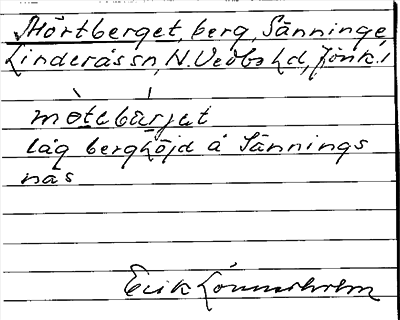 Mörtberget, berg, Sänninge
Linderås sn, N. Vedbo hd, Jönk. l
mǫtabärjat
låg berghöjd å Sännings
näs
Erik Lönnerholm